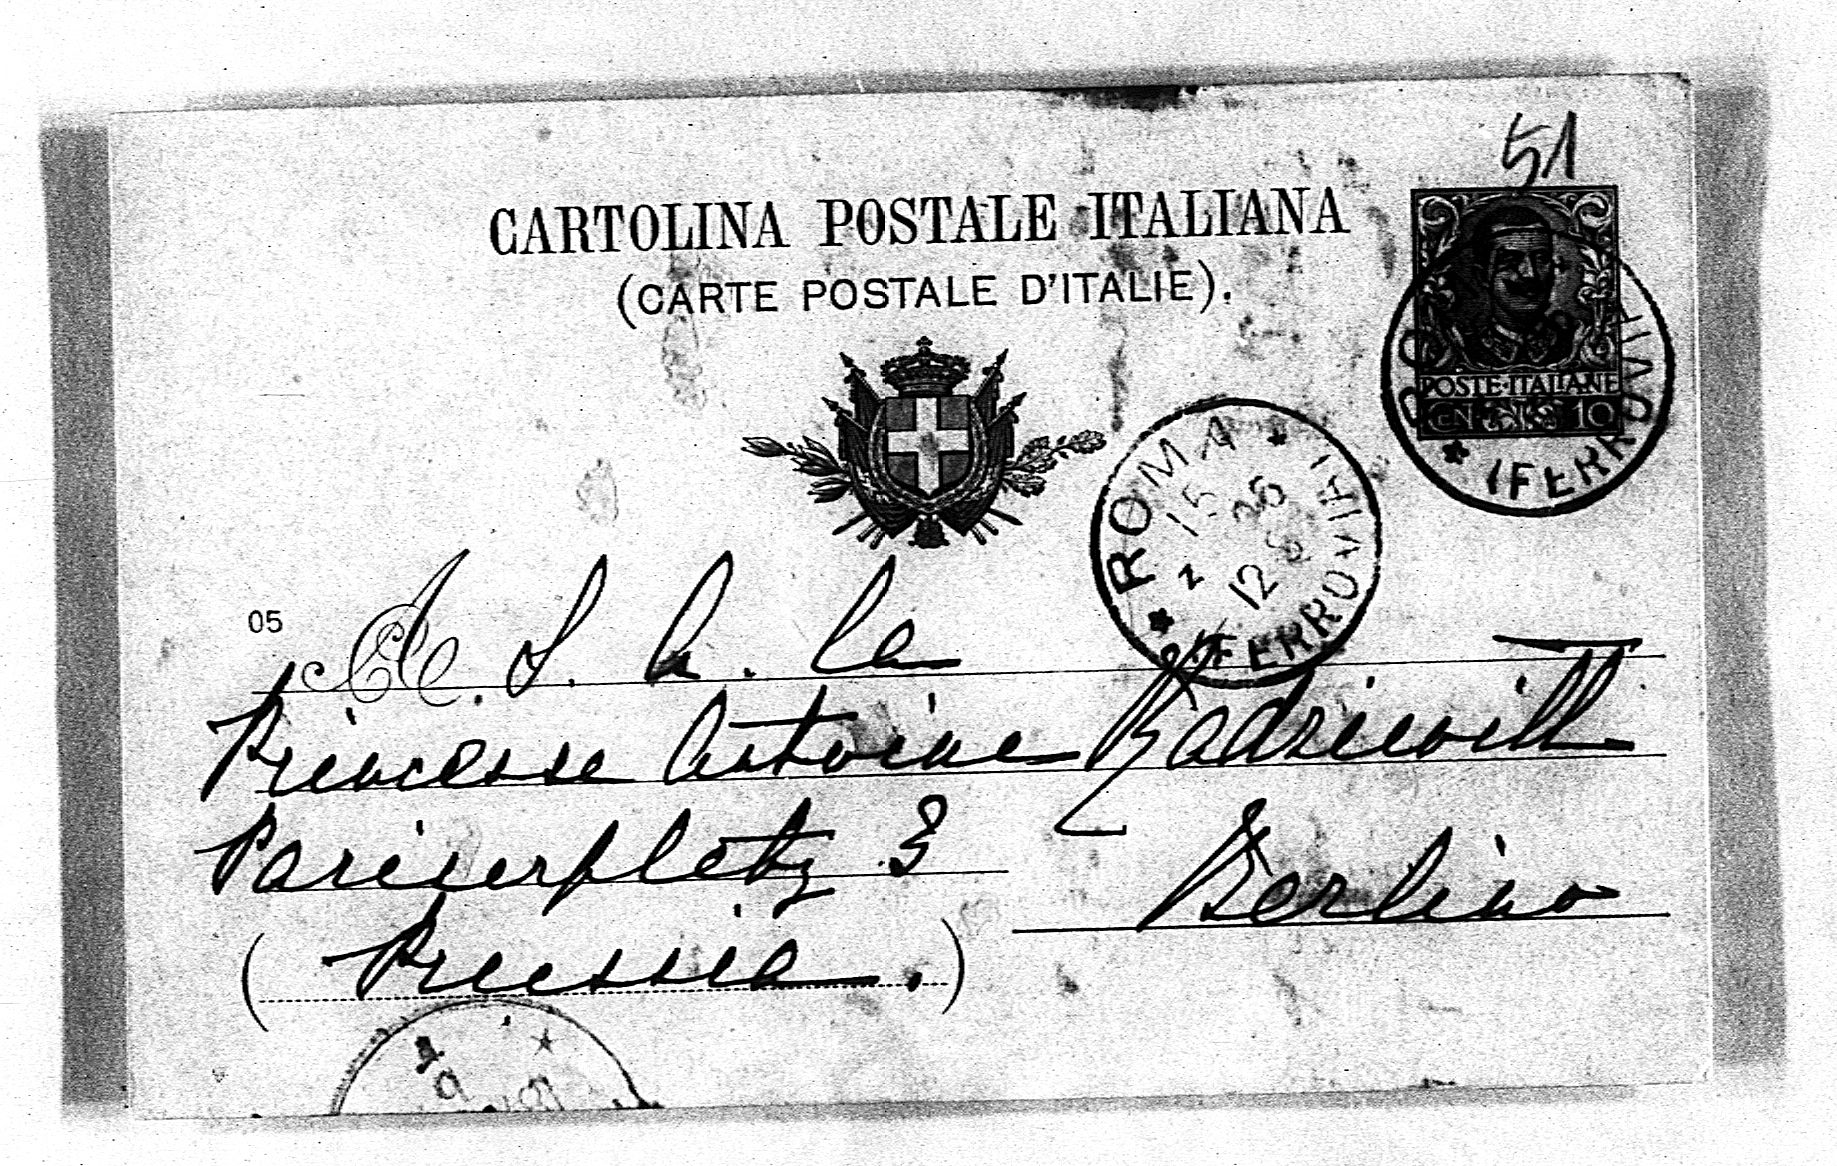 51
CARTOLINA POSTALE ITALIANA
(CARTE POSTALE D'ITALIE).
POSTE·ITALIANE
10
(FERROVIA)
ROMA
15
12
(FERROVIA)
05
A. S. A. la
Princesse Antoine Radziwill
Pariserplatz 3
Berlino
(Prussia.)